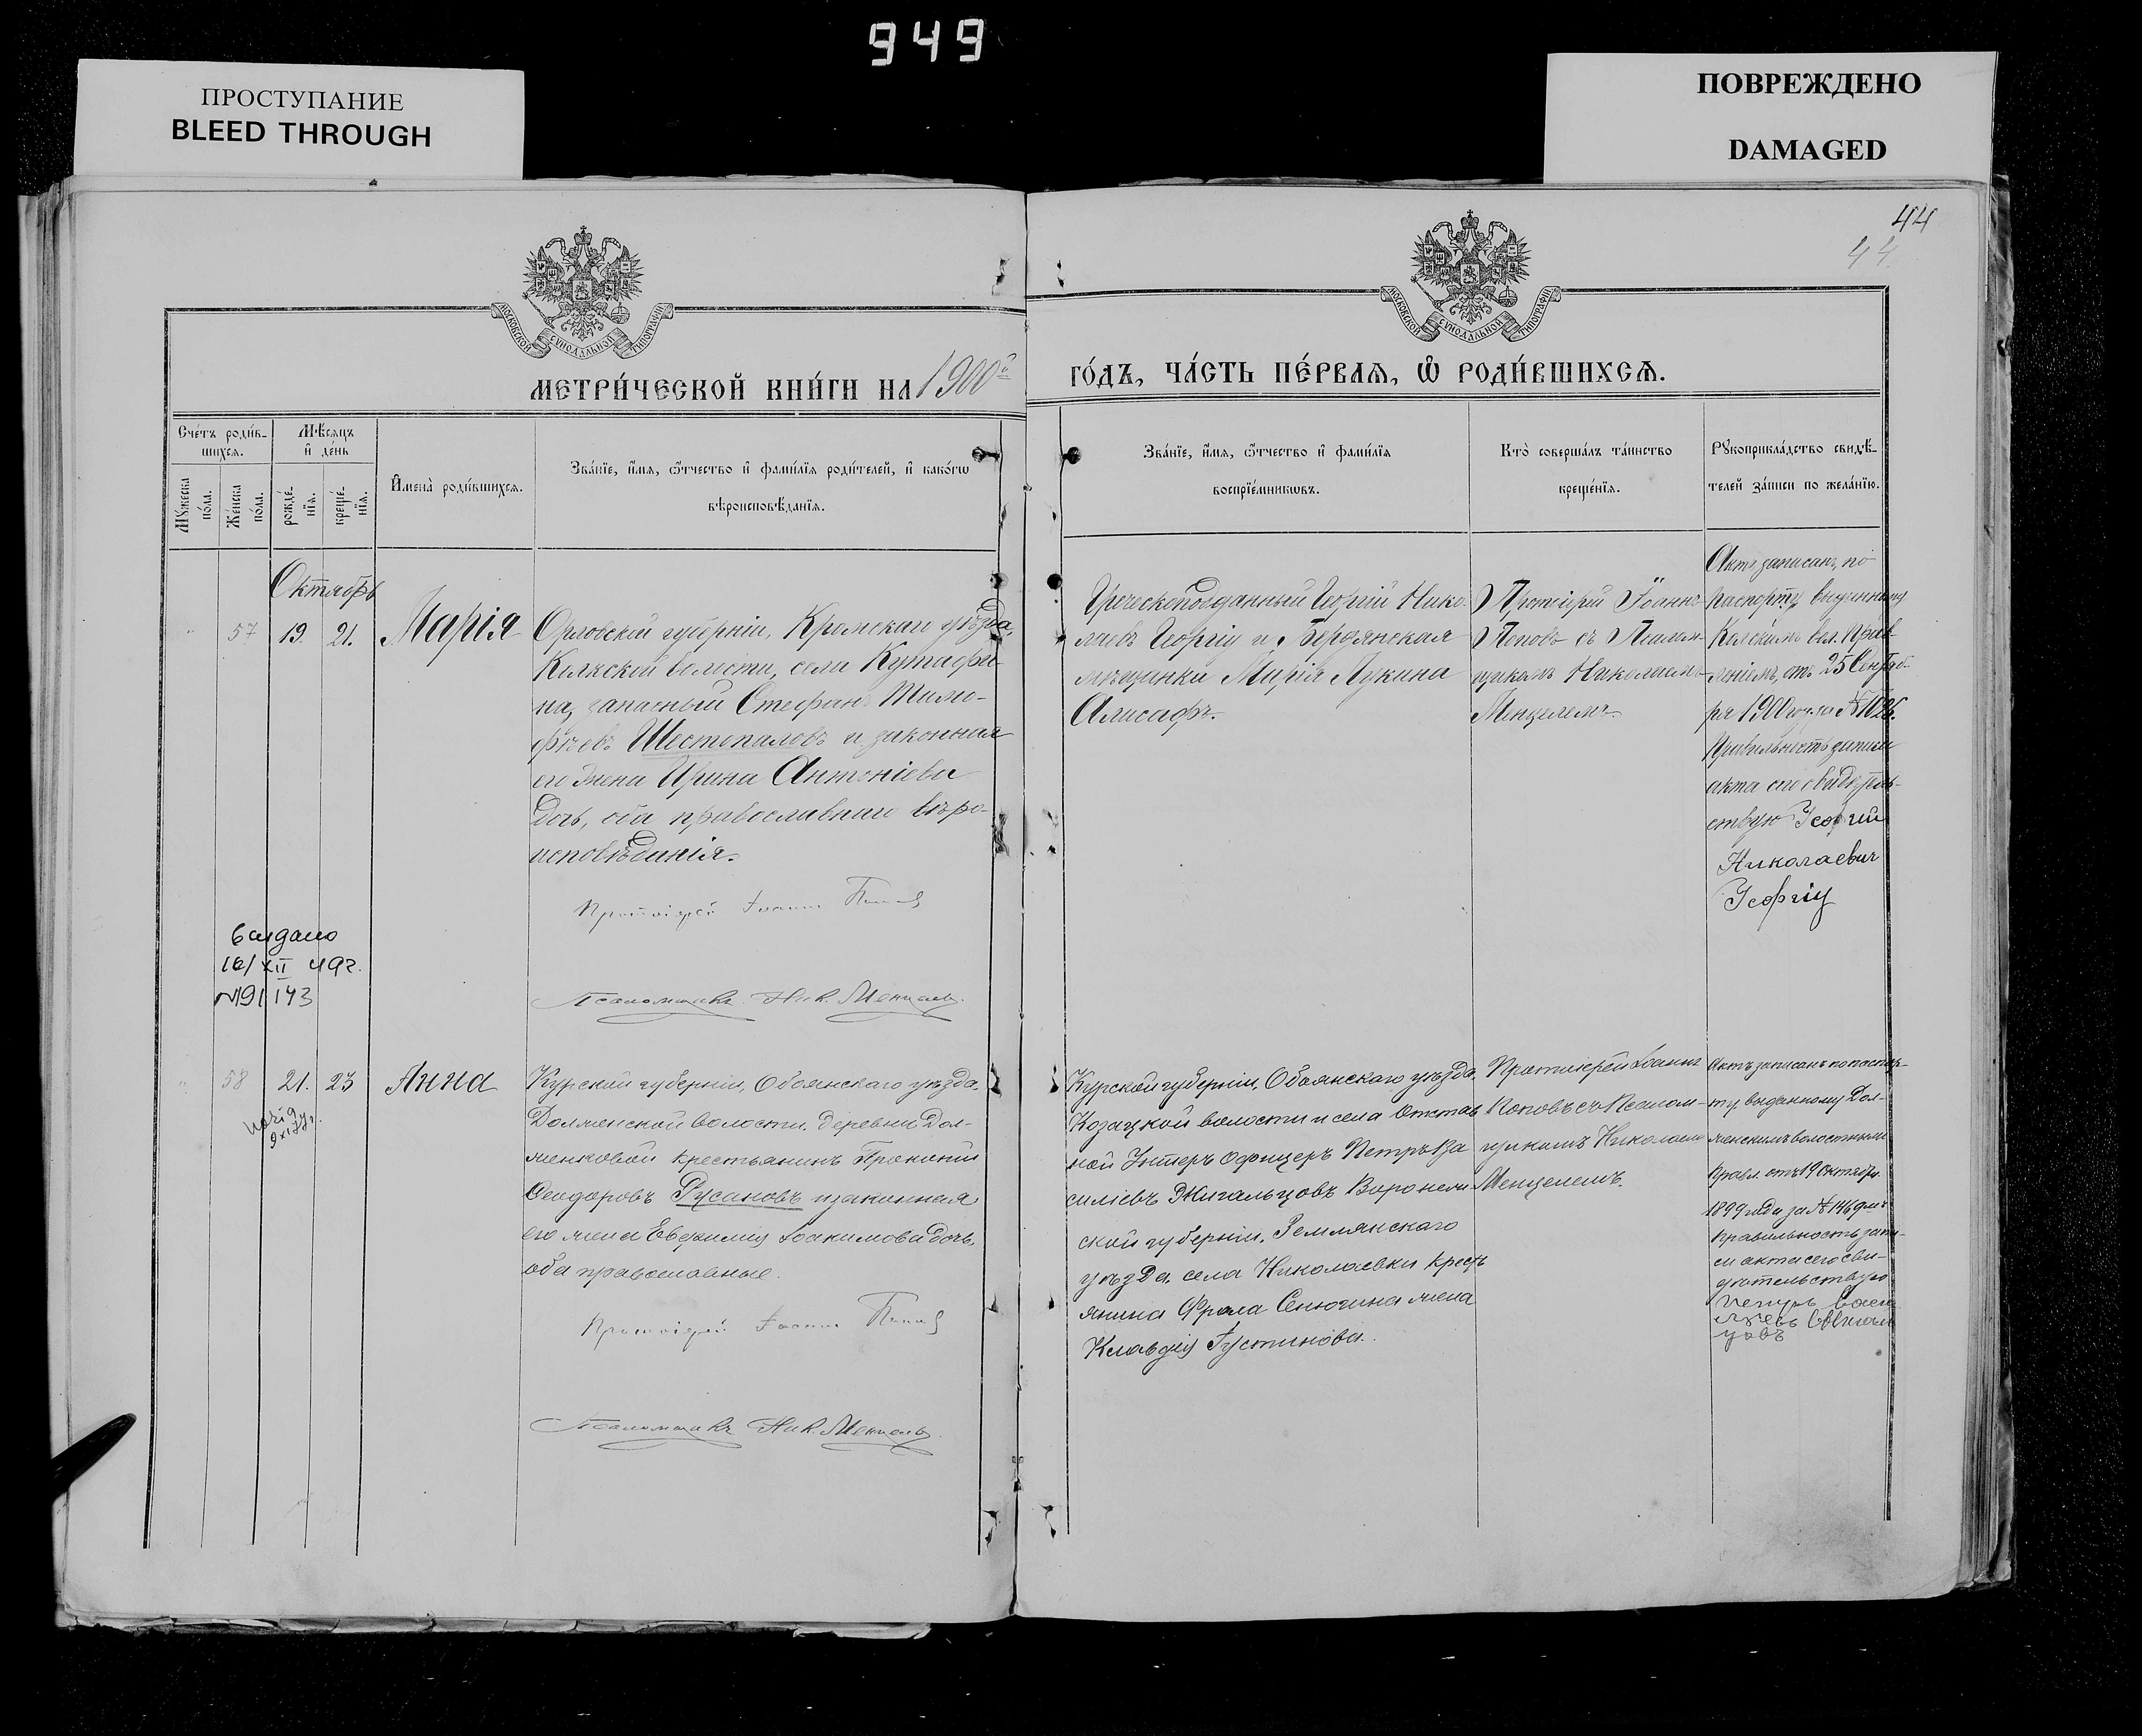 949
ПРОСТУПАНИЕ
BLEED THROUGH
ПОВРЕЖДЕНО
DAMAGED
44
44
МОСКОВСКОЙ СѴНОДАЛЬНОЙ ТИПОГРАФІИ
МОСКОВСКОЙ СѴНОДАЛЬНОЙ ТИПОГРАФІИ
МЕТРИ́ЧЕСКОЙ КНИ́ГИ НА 1900й
ГО́ДЪ, ЧА́СТЬ ПЕ́РВАѦ, Ѡ҆ РОДИ́ВШИХСѦ.
Сче́тъ роди́в-
шихсѧ.
Мꙋ́жеска по́ла.
Же́нска по́ла.
Мѣ́сѧцъ
и҆ де́нь
рожде́-
нїѧ.
креще́-
нїѧ.
И҆мена̀ роди́вшихсѧ.
Зва́нїе, и҆́мѧ, ѻ҆́тчество и҆ фами́лїѧ роди́телей, и҆ како́гѡ
вѣроисповѣ́данїѧ.
Зва́нїе, и҆́мѧ, ѻ҆́тчество и҆ фами́лїѧ
воспрїе́мникѡвъ.
Кто̀ соверша́лъ та́инство
креще́нїѧ.
Рꙋкоприкла́дство свидѣ́-
телей за́писи по жела́нїю.
Октябрь
57 19. 21. Марія
Орловской губерніи, Кромскаго уѣзда,
волости, села Кутафи-
на, запасный Стефанъ Тимо-
фѣевъ Шестопаловъ и законная
его жена Ирина Антоніева
дочь, оба православнаго вѣро-
исповѣданія.
Протоіерей Іоаннъ Поповъ
Псаломщикъ Ник. Менцель.
Греческоподданный Георгій Нико-
лаевъ Георгіу и Бердянская
мѣщанка Марія Лукина
Алисафъ.
Протоіерей Іоаннъ
Поповъ съ Псалом-
щикомъ Николаемъ
Менцелемъ.
Актъ записанъ по
паспорту, выданному
вол. Прав-
леніемъ, отъ 25 Сентяб-
ря 1900 год. за № 1026.
Правильность записи
акта сего свидѣтель-
ствую Георгій
Николаевич
Георгіу
выдано
16/XII 49г.
143
58 21. 23 Анна
Курской губерніи, Обоянскаго уѣзда,
Долженской волости, деревни Дол-
женковой крестьянинъ Прокопій
Ѳеодоровъ Русановъ и законная
его жена Евфимія Іоакимова дочь,
оба православные.
Протоіерей Іоаннъ Поповъ
Псаломщикъ Ник. Менцель.
Курской губерніи, Обоянскаго уѣзда,
Козацкой волости и села Отстав
ной Унтеръ Офицеръ Петръ Ва
силіевъ Жигальцовъ Воронеж-
ской губерніи, Землянскаго
уѣзда, села Николаевки крест
янина Фрола Сенюгина жена
Клавдія Іустинова.
Протоіерей Іоаннъ
Поповъ съ Псалом-
щикомъ Николаем
Менцелемъ.
Актъ записанъ по паспор-
ту, выданному Дол-
женскимъ волостнымъ
Правл. отъ 19 Октября
1899 года за №
Правильность запи-
си акта сего сви-
дѣтельствую
Петръ Васи